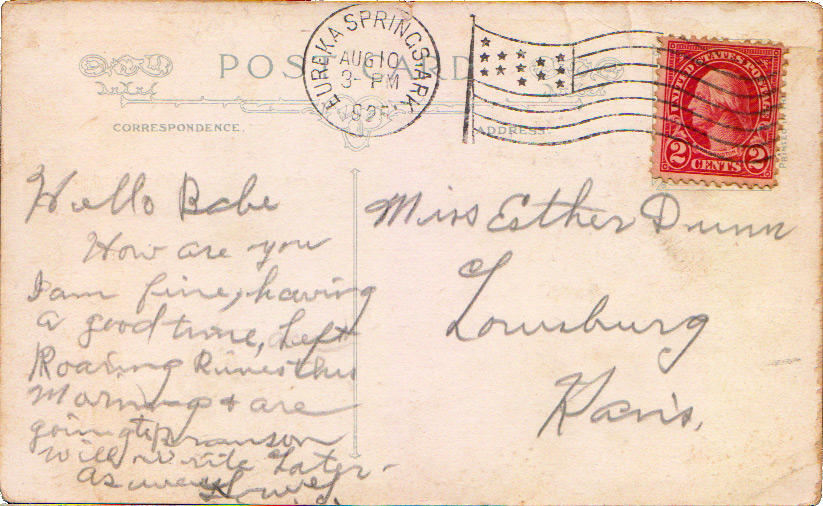 POST CARD
EUREKA SPRINGS, ARK.
AUG 10
3 - PM
192
CORRESPONDENCE.
ADDRESS
UNITED STATES POSTAGE
2 CENTS 2
Hello Babe
How are you
I am fine, having
a good time, Left
Roaring River this
Morning & are
going to Branson
will write Later -
as ever
Miss Esther Dunn
Louisburg
Kans.